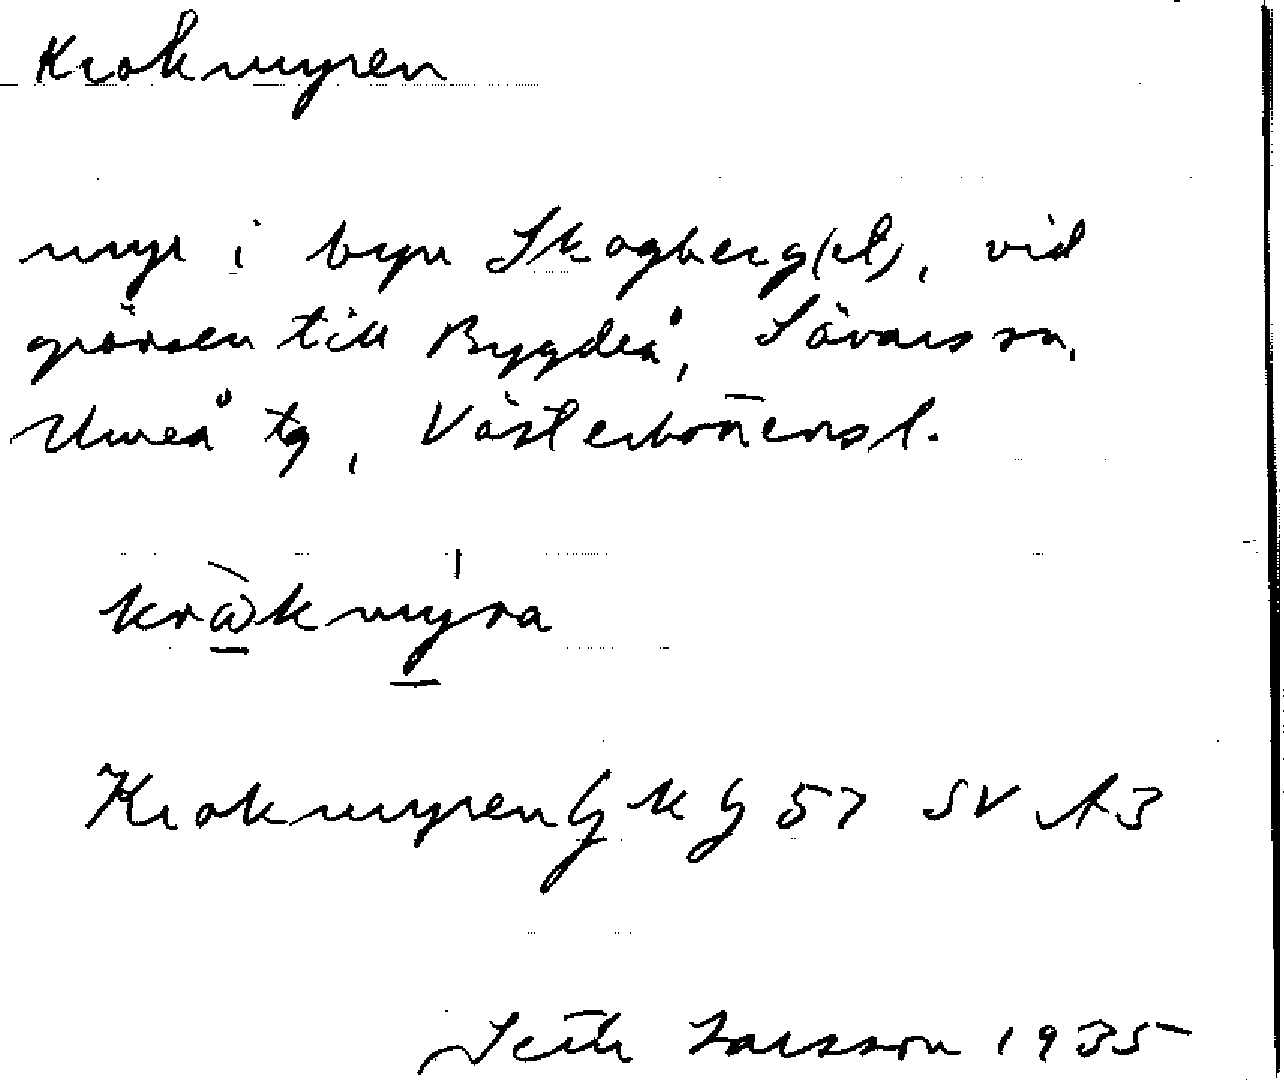 Krokmyren
myr i byn Skogberg(et), vid
gränsen till Bygdeå, Sävars sn,
Umeå tg, Västerbottensl.
kråkmyra
Krokmyren GKG 57 SV A3
Seth Larsson 1935